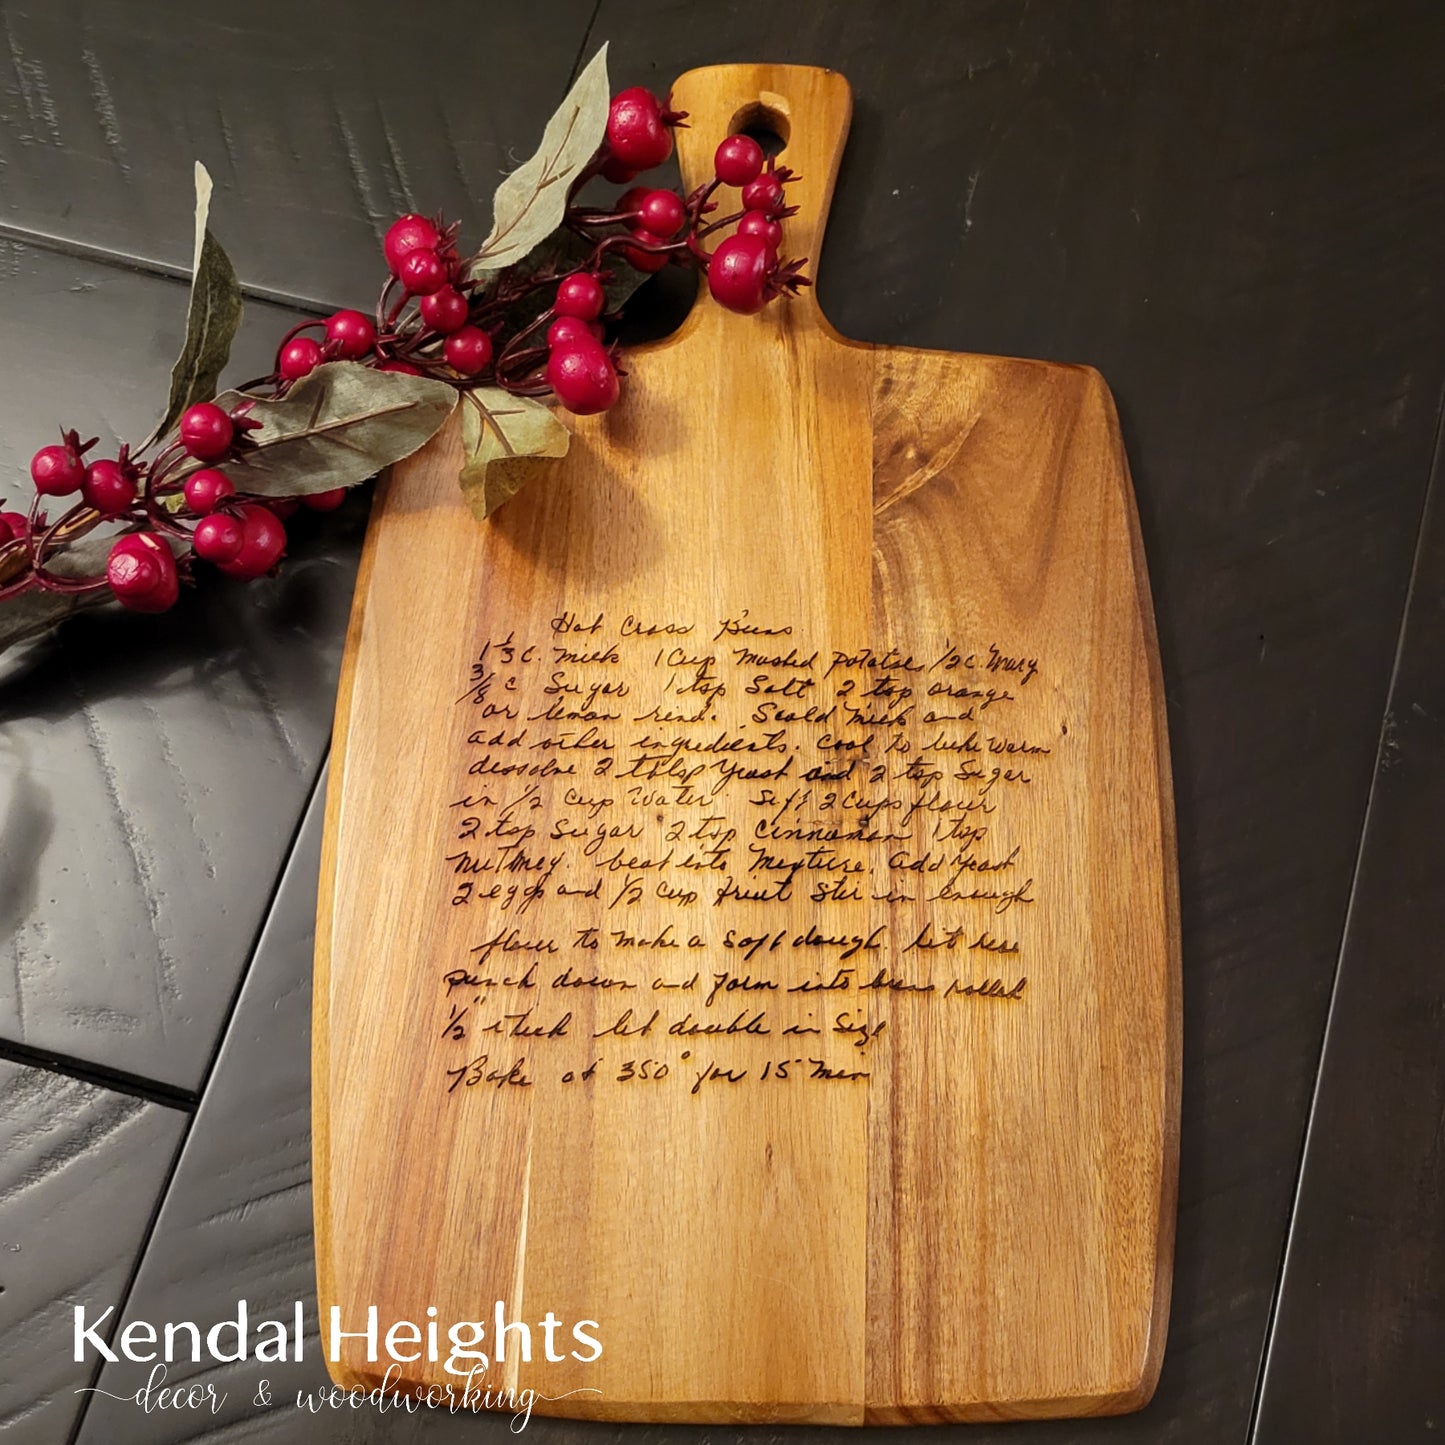 Hot Cross Buns
1 1/3 C. Milk 1 Cup Mashed potatoes 1/2 C. Marg
3/8 C Sugar 1 tsp Salt 2 tsp orange
or lemon rind. Scald Milk and
add other ingredients. Cool to luke warm
dissolve 2 tblsp yeast and 2 tsp Sugar
in 1/2 Cup Water Sift 2 Cups flour
2 tsp Sugar 2 tsp Cinnamon 1 tsp
Nutmeg. beat into Mixture. add yeast
2 eggs and 1/2 Cup fruit Stir in enough
flour to make a Soft dough. let rise
punch down and form into buns rolled
1/2" thick let double in Size
Bake at 350° for 15 Min
Kendal Heights
decor & woodworking